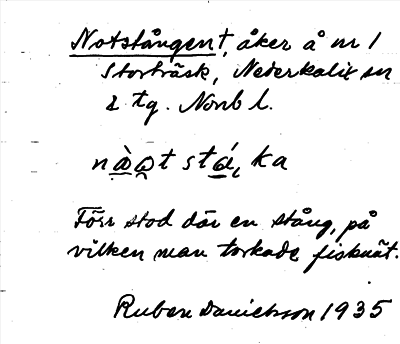 Notstången†, åker å nr 1
Storträsk, Nederkalix sn
o tg. Nonb l.
nàọt stá, ka
Förr stod där en stång, på
vilken man torkade fisknät.
Ruben Danielsson 1935